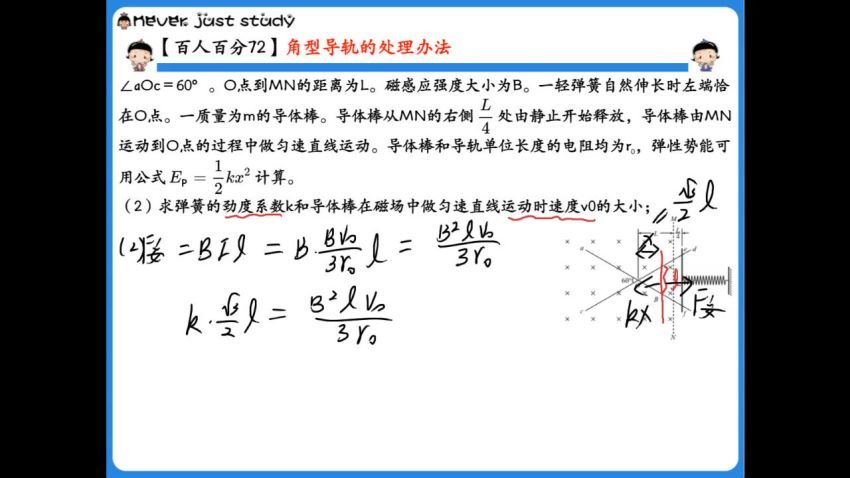 Never just study
【百人百分72】角型导轨的处理办法
∠aOc=60° 。O点到MN的距离为L。磁感应强度大小为B。一轻弹簧自然伸长时左端恰
在O点。一质量为m的导体棒。导体棒从MN的右侧 L/4 处由静止开始释放，导体棒由MN
运动到O点的过程中做匀速直线运动。导体棒和导轨单位长度的电阻均为r₀，弹性势能可
用公式 Eₚ = 1/2 kx² 计算。
（2）求弹簧的劲度系数k和导体棒在磁场中做匀速直线运动时速度v0的大小；
√3/2 l
(2) F安 = BIl = B · Bv₀/3r₀ l = B²lv₀/3r₀
k · √3/2 l = B²lv₀/3r₀
M
a
d
60°
x
l
B
c
kx
F安
N